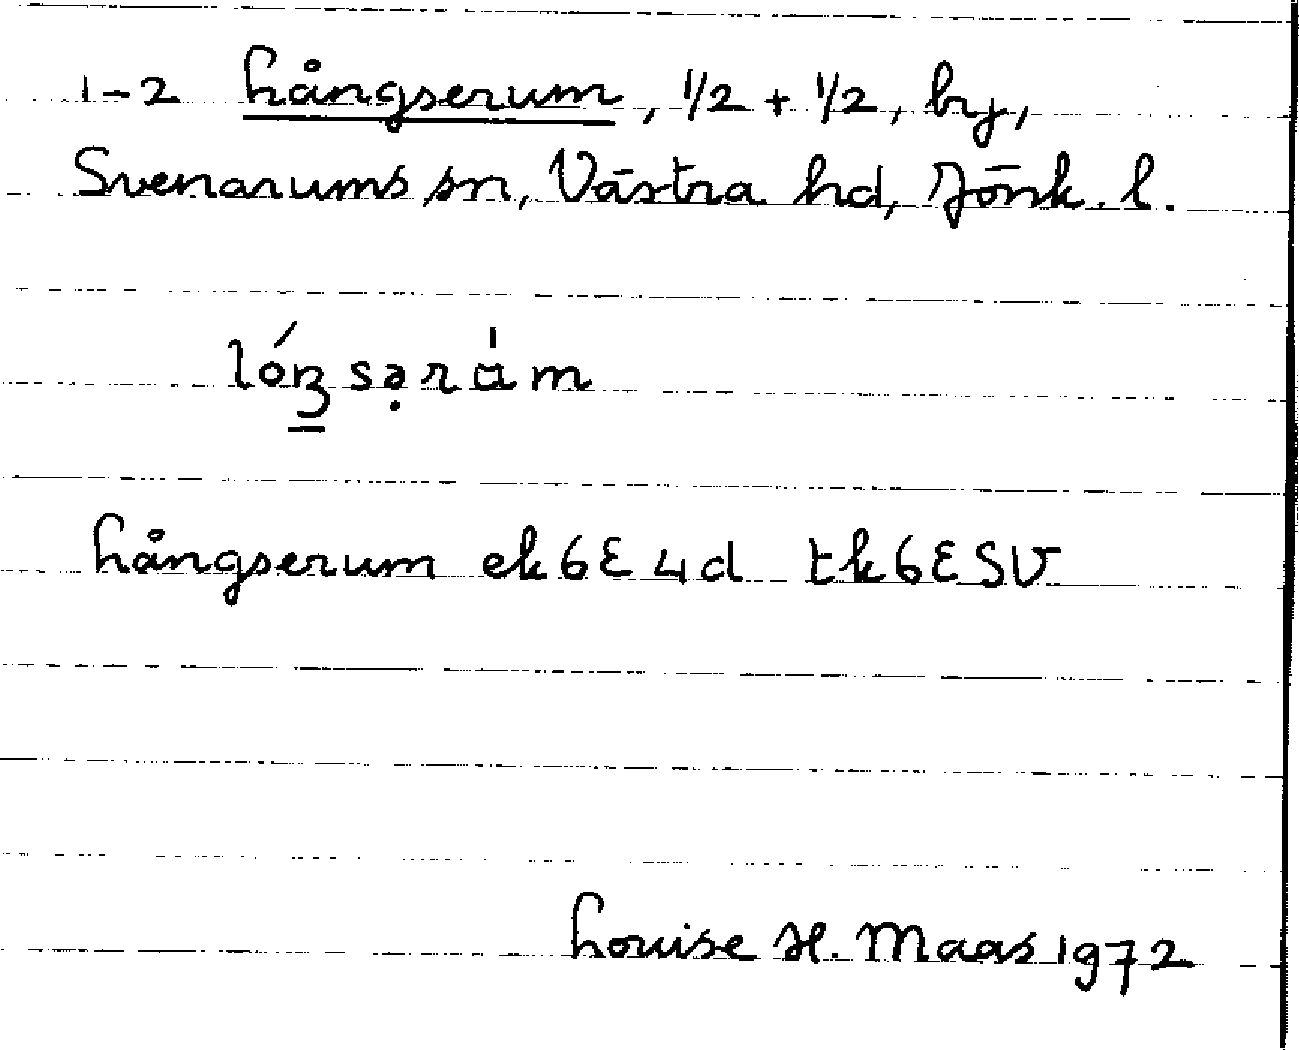 1-2 Långserum, 1/2 + 1/2, by,
Svenarums sn, Västra hd, Jönk. l.
Långserum ek6E4d tk6ESV
Louise H. Maas 1972